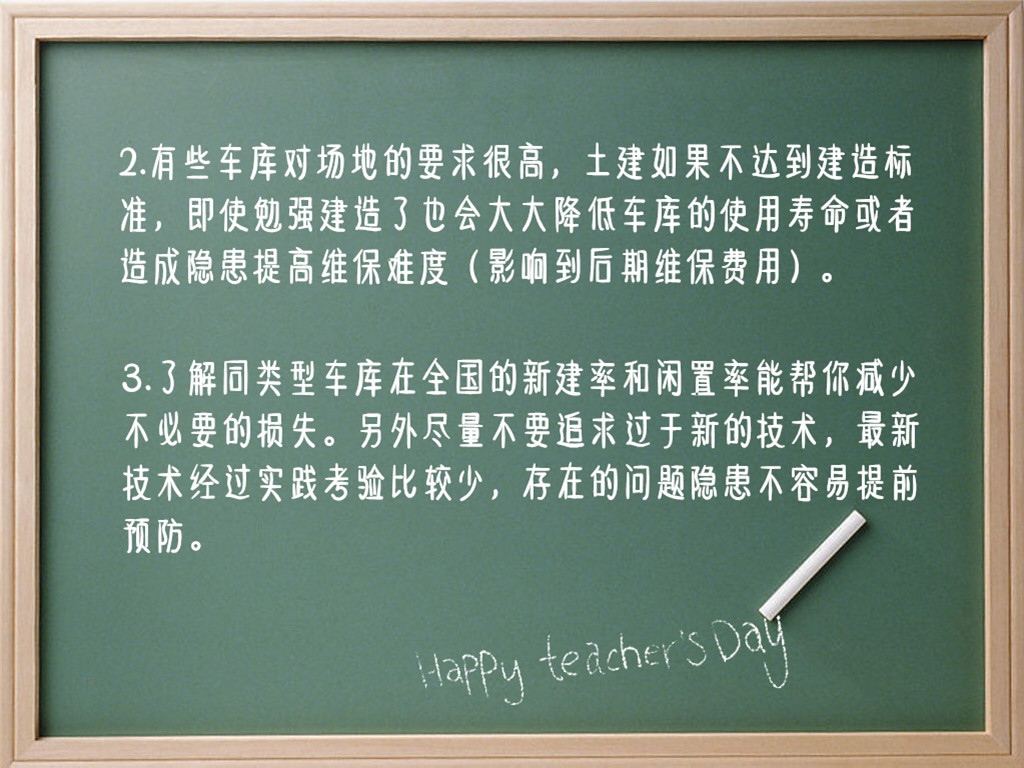 2.有些车库对场地的要求很高，土建如果不达到建造标
准，即使勉强建造了也会大大降低车库的使用寿命或者
造成隐患提高维保难度（影响到后期维保费用）。
3.了解同类型车库在全国的新建率和闲置率能帮你减少
不必要的损失。另外尽量不要追求过于新的技术，最新
技术经过实践考验比较少，存在的问题隐患不容易提前
预防。
Happy teacher's Day